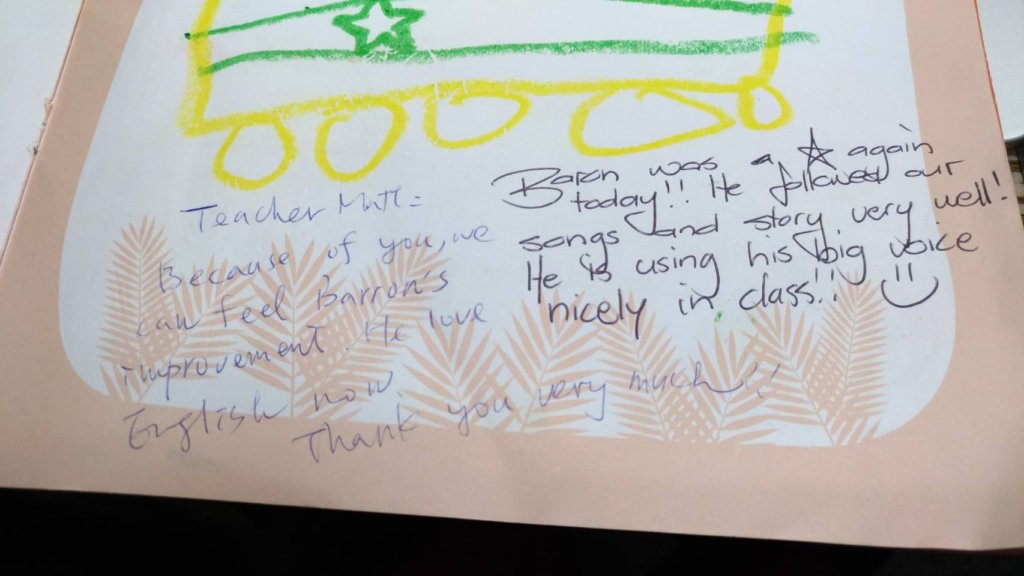 Baron was a ☆ again
today!! He followed our
songs and story very well!
He is using his big voice
nicely in class!!
Teacher Matt:
Because of you, we
can feel Barron's
improvement. He love
English now.
Thank you very much!!